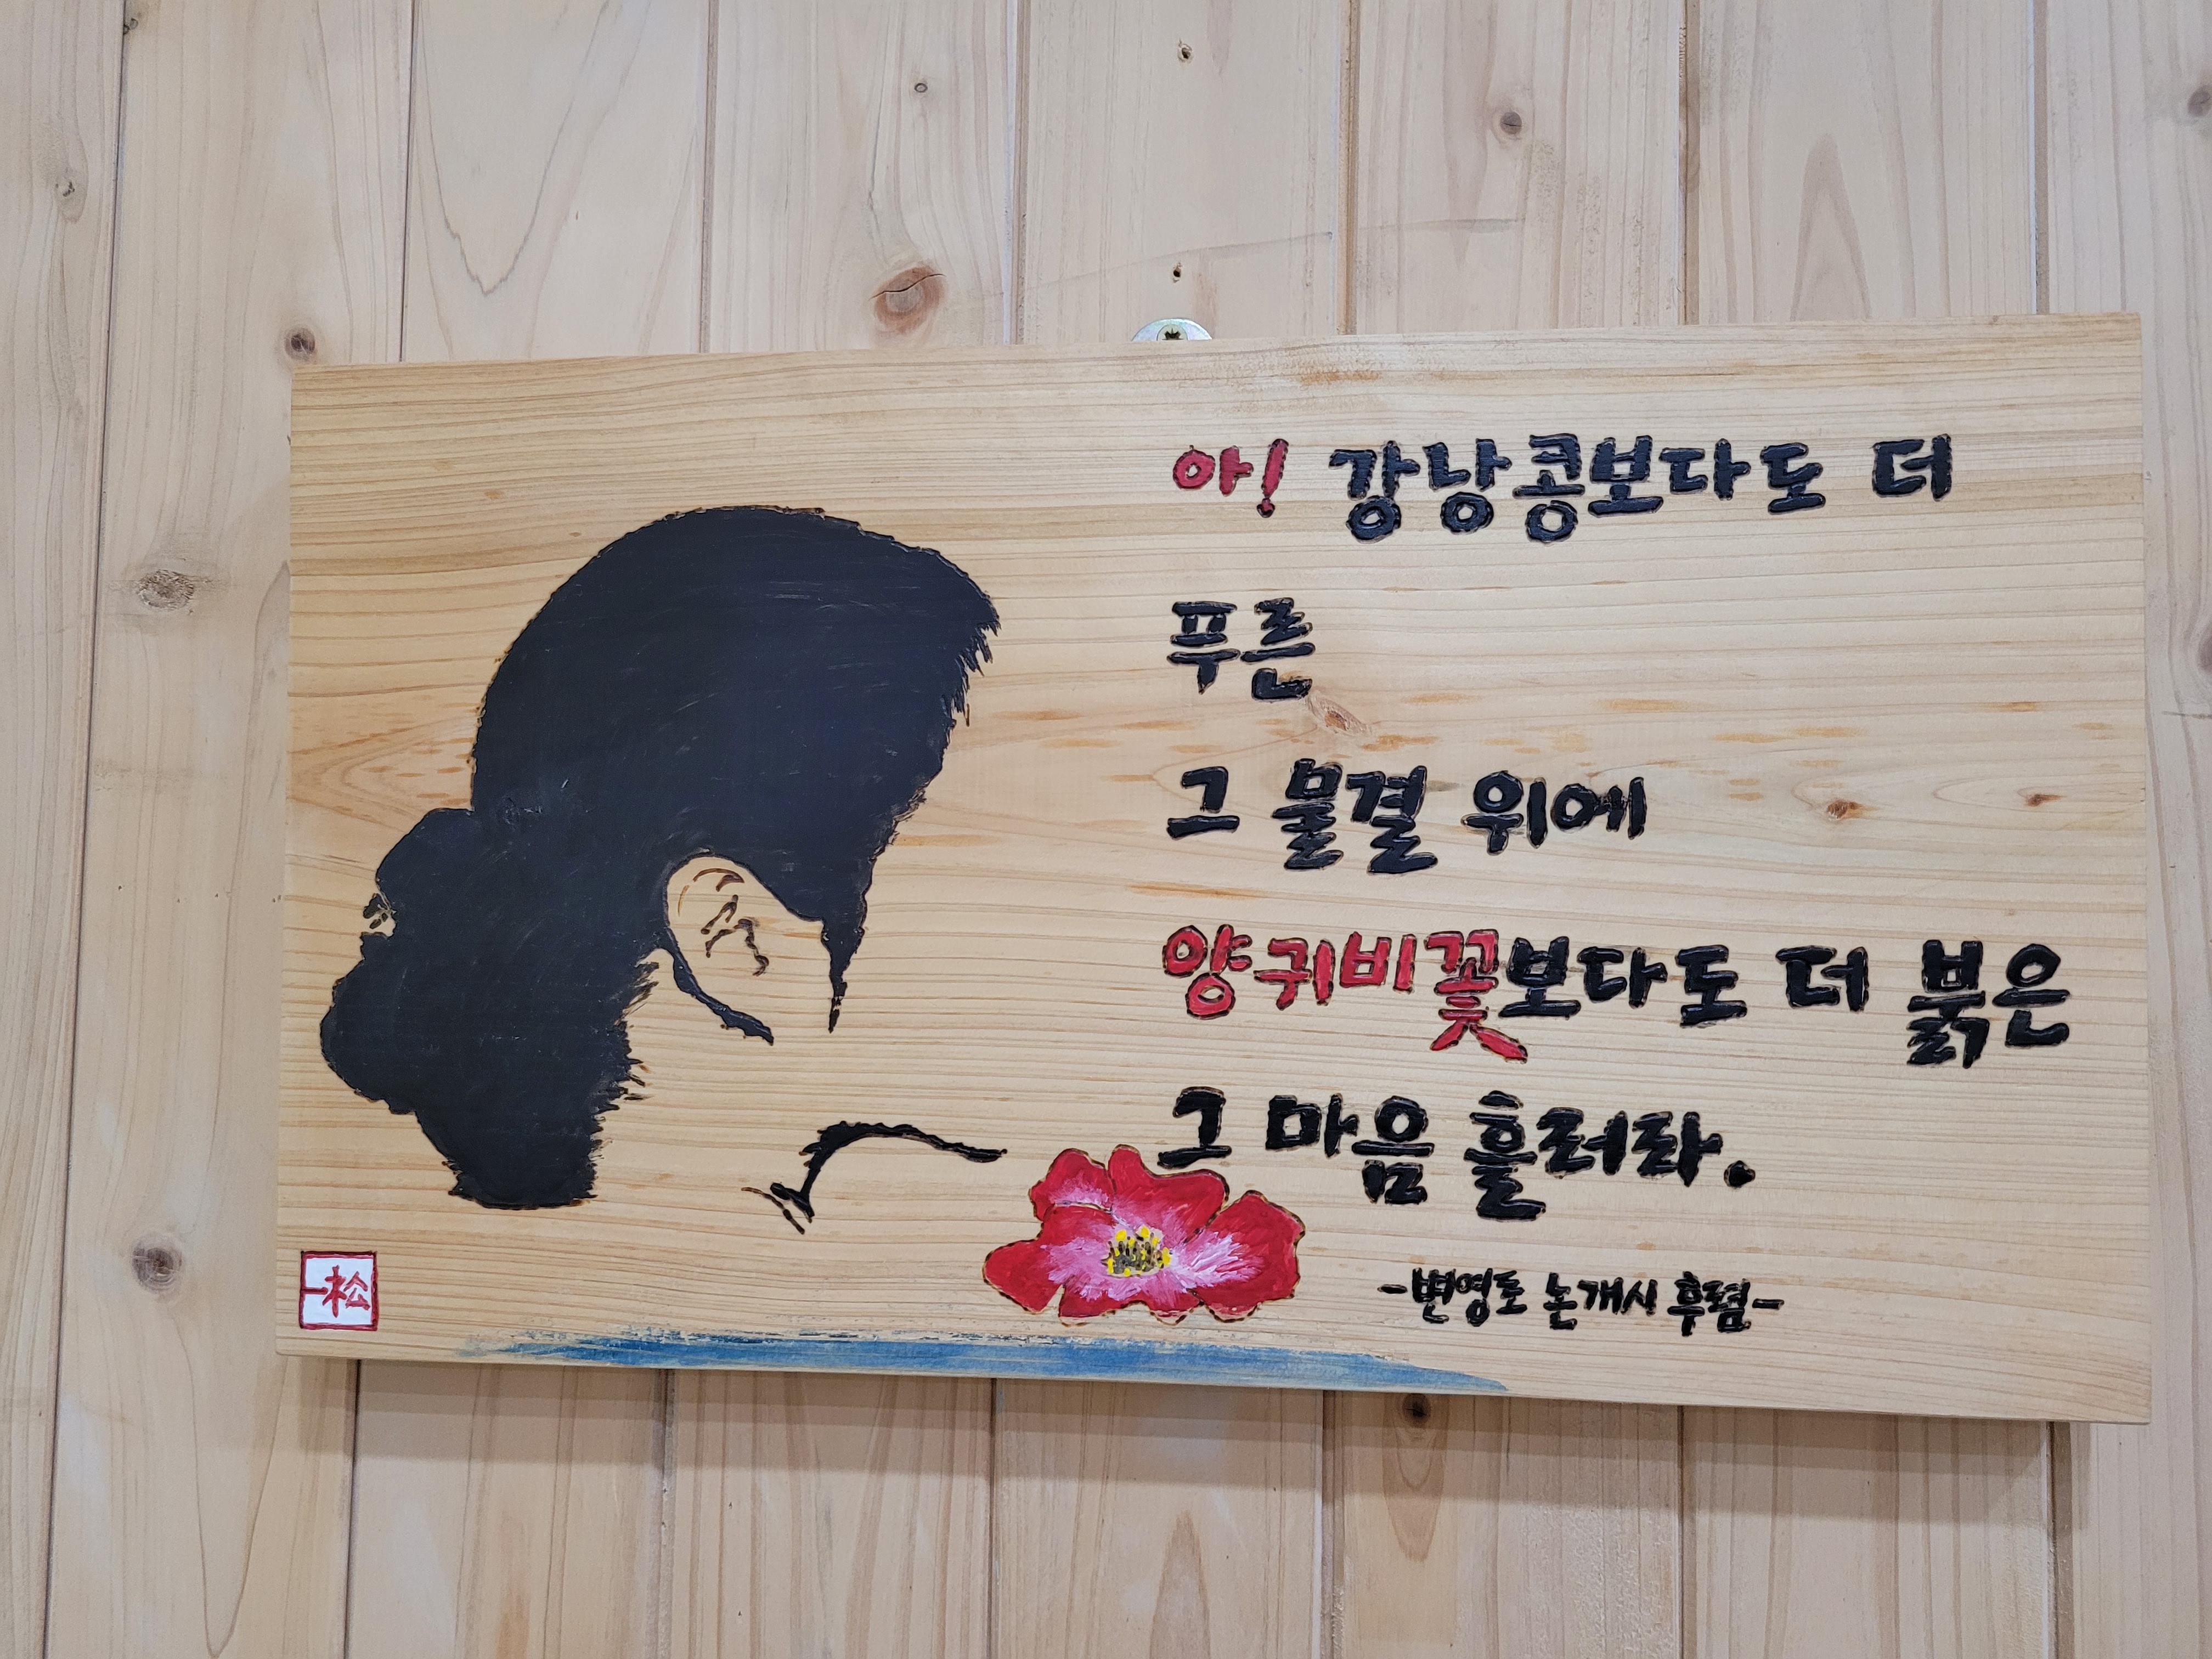 아! 강낭콩보다도 더
푸른
그 물결 위에
양귀비꽃보다도 더 붉은
그 마음 흘러라.
-변영로 논개시 후렴-
一松